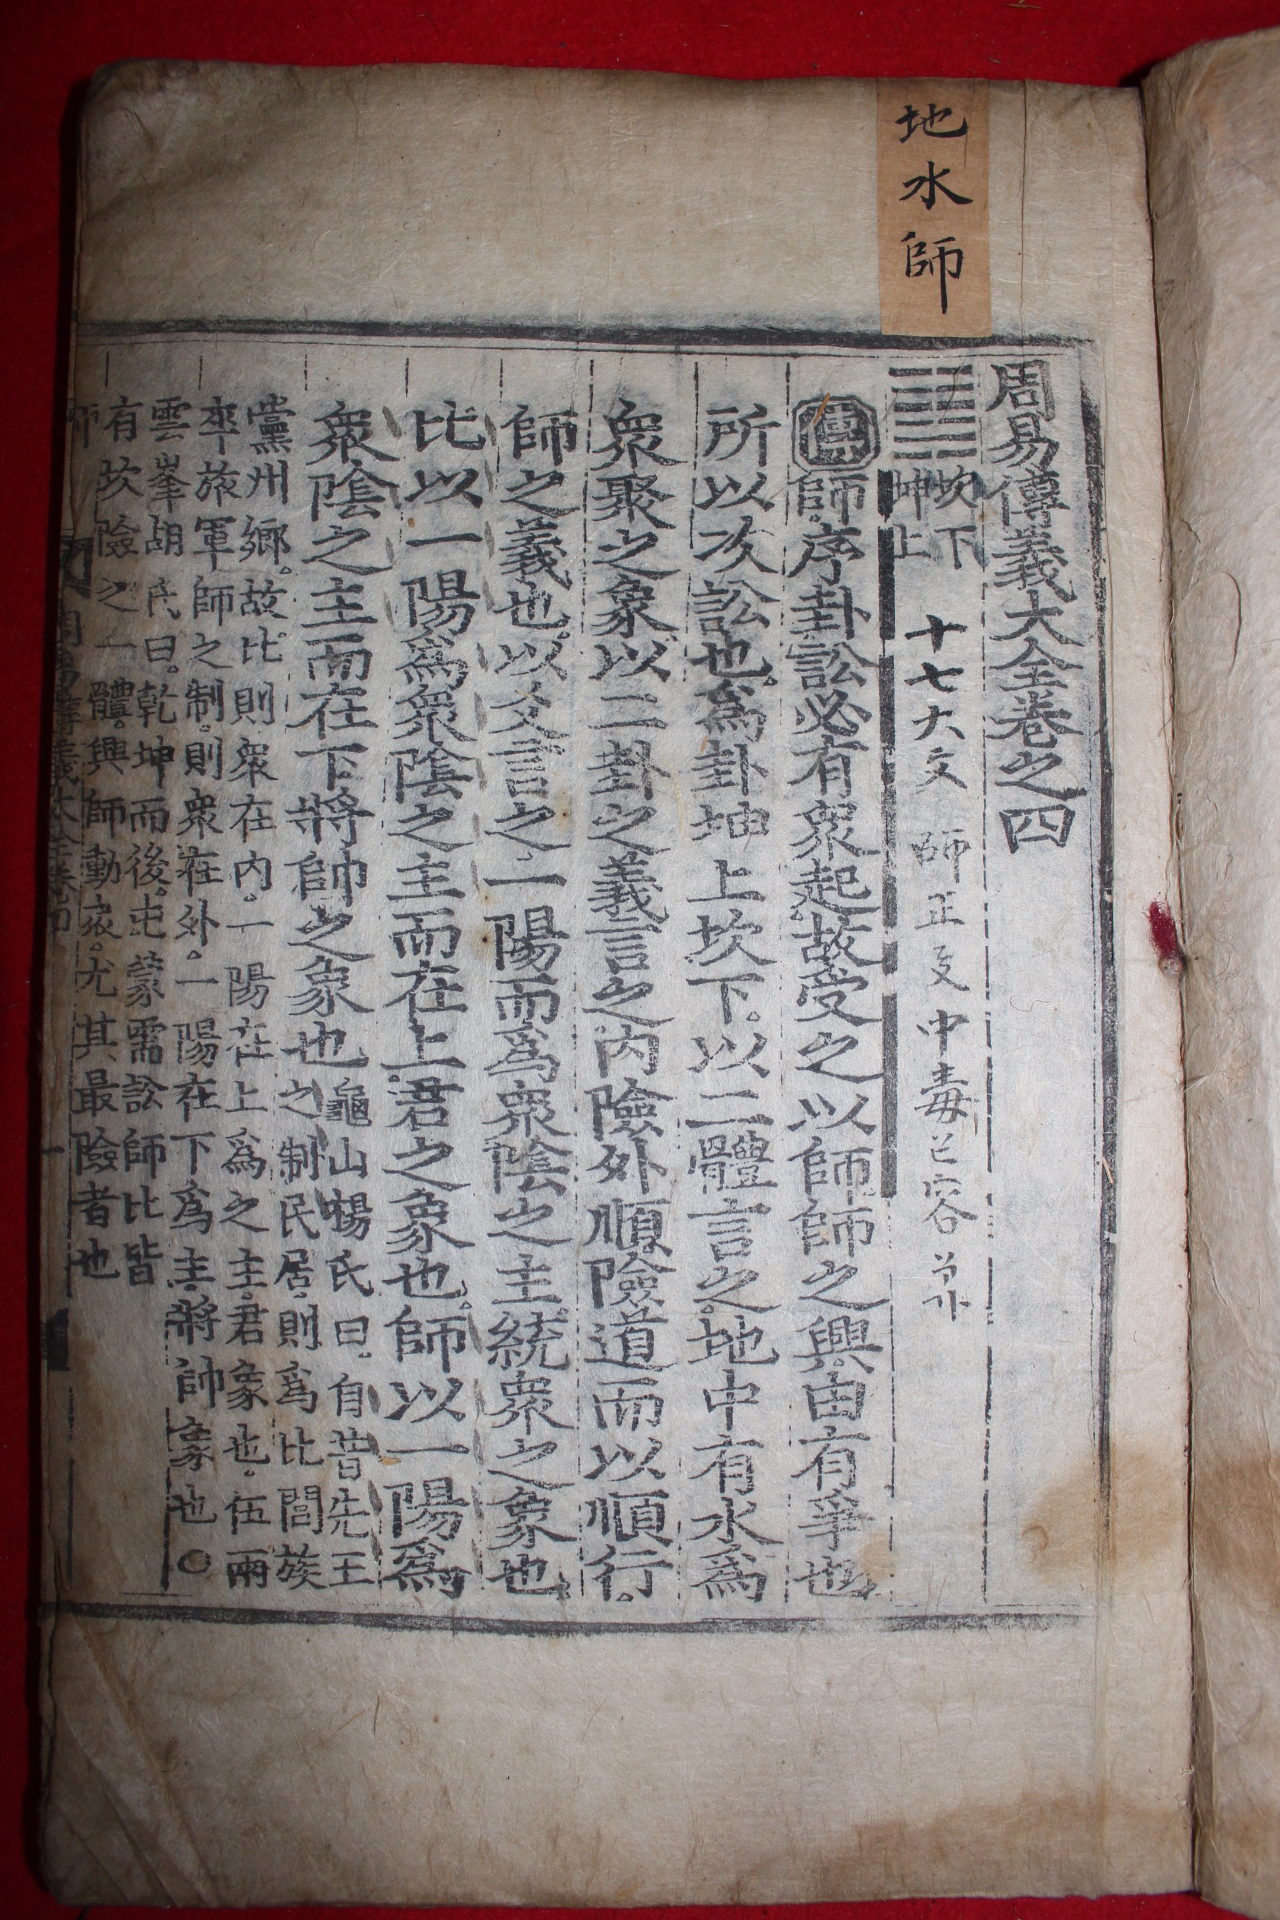 地水師
周易傳義大全卷之四
坎下
坤上
十七大文 師正文中毒已容
傳師。序卦訟必有衆起。故受之以師。師之興。由有爭也。
所以次訟也。爲卦坤上坎下。以二體言之。地中有水。爲
衆聚之象。以二卦之義言之。內險外順。險道而以順行。
師之義也。以爻言之。一陽而爲衆陰之主。統衆之象也。
比以一陽爲衆陰之主而在上。君之象也。師以一陽爲
衆陰之主而在下。將帥之象也
龜山楊氏曰。自昔先王
之制民居。則爲比閭族
黨州鄉。故比則衆在內。一陽在上爲之主。君象也。伍兩
卒旅軍師之制。則衆在外。一陽在下爲主。將帥象也○
雲峯胡氏曰。乾坤而後。屯蒙需訟師比皆
有坎險之一體。興師動衆。尤其最險者也
師
周易傳義大全卷四
一